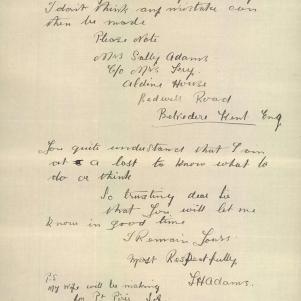 I don't think any mistake can
then be made
Please Note
Mrs Sally Adams
C/o Mrs
Aldine House
Bedwell Road
Belvedere Kent Eng
You quite understand that I am
at a lost to know what to
do or think
So trusting dear Sir
that you will let me
know in good time
I Remain Yours
Most Respectfully
P.S. JHAdams.
My Wife will be making
for Pt